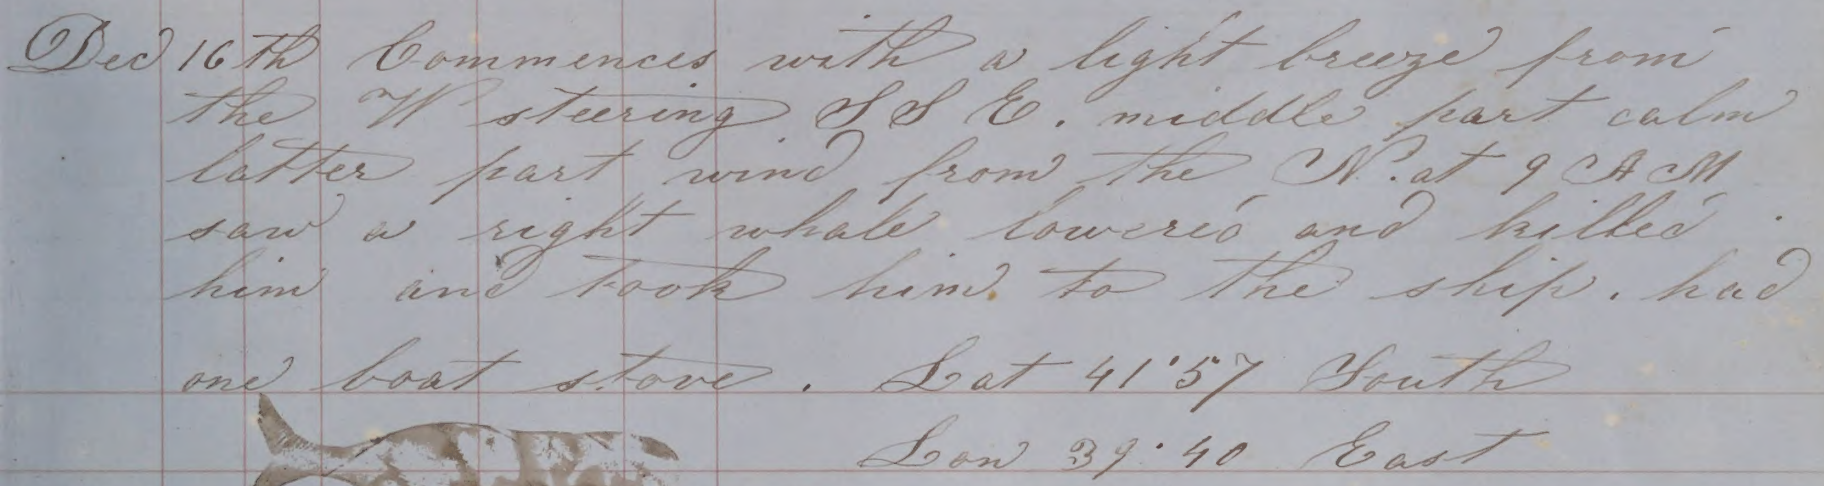 Dec 16th Commences with a light breeze from
the W steering S S E. middle part calm
latter part wind from the N. at 9 A M
saw a right whale lowered and killed
him and took him to the ship. had
one boat stove. Lat 41.57 South
Lon 39.40 East